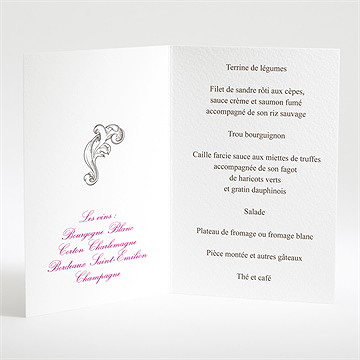 Les vins :
Bourgogne Blanc
Corton Charlemagne
Bordeaux Saint-Emilion
Champagne
Terrine de légumes
Filet de sandre rôti aux cèpes,
sauce crème et saumon fumé
accompagné de son riz sauvage
Trou bourguignon
Caille farcie sauce aux miettes de truffes
accompagnée de son fagot
de haricots verts
et gratin dauphinois
Salade
Plateau de fromage ou fromage blanc
Pièce montée et autres gâteaux
Thé et café